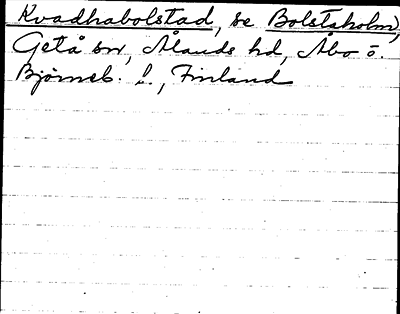 Kvadhabolstad, se Bolstaholm,
Getå sn, Ålands hd, Åbo o.
Björneb. l., Finland